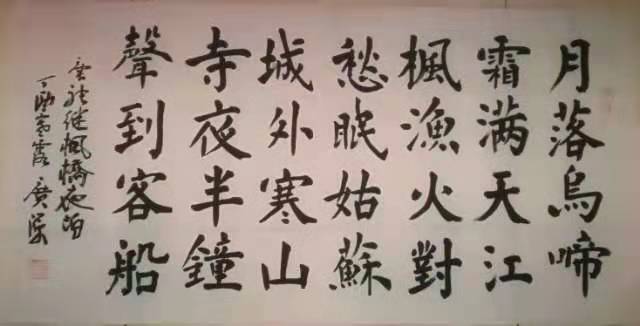 月落烏啼
霜满天江
楓漁火對
愁眠姑蘇
城外寒山
寺夜半鐘
聲到客船
張繼楓橋夜泊
丁酉寒露